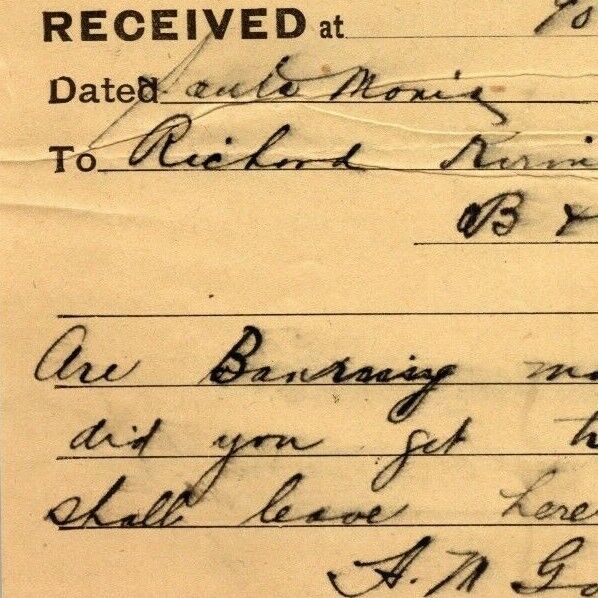 RECEIVED at 90
Dated Santa Monica
To Richard Kirwi
B &
Are Banning ma
did you get th
shall leave here
A. M Go